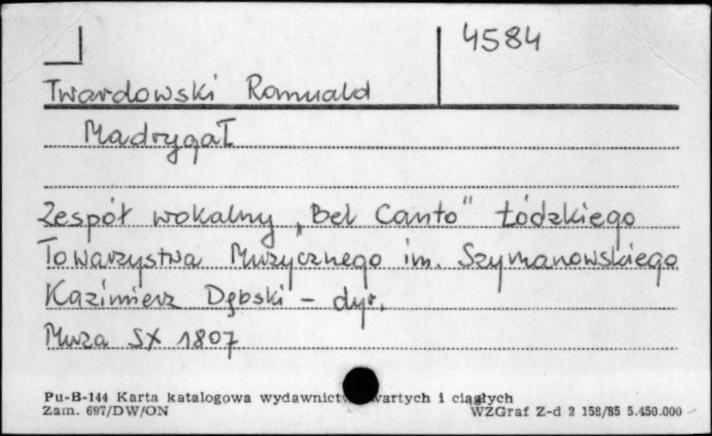 4584
Twardowski Romuald
Madrygał
Zespół wokalny „Bel Canto" Łódzkiego
Towarzystwa Muzycznego im. Szymanowskiego
Kazimierz Dębski - dyr.
Muza SX 1807
Pu-B-144 Karta katalogowa wydawnictw zwartych i ciągłych
Zam. 697/DW/ON WZGraf Z-d 2 158/85 5.450.000